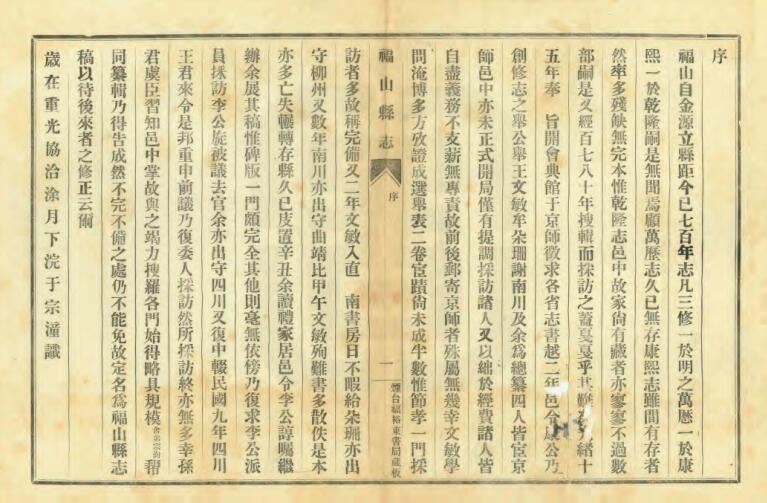 序
福山自金源立縣距今已七百年志凡三修一於明之萬曆一於康
熙一於乾隆嗣是無聞焉顧萬曆志久已無存康熙志雖間有存者
然率多殘缺無完本惟乾隆志邑中故家尙有藏者亦寥寥不過數
部嗣是又經百七八十年搜輯而採訪之蓋戛戛乎其難光緒十
五年奉 旨開會典館于京師徵求各省志書越二年邑令康公乃
創修志之舉公舉王文敏牟朵珊謝南川及余爲總纂四人皆官京
師邑中亦未正式開局僅有提調採訪諸人又以絀於經費諸人皆
自盡義務不支薪無專責故前後郵寄京師者殊屬無幾幸文敏學
問淹博多方攷證成選舉表二卷宦蹟尙未成半數惟節孝一門採
福山縣志
序
一
煙台福裕東書局藏板
訪者多故稱完備又二年文敏入直 南書房日不暇給朵珊亦出
守柳州又數年南川亦出守曲靖比甲午文敏殉難書多散佚是本
亦多亡失輾轉存縣久已庋置辛丑余讀禮家居邑令李公諄囑繼
辦余展其稿惟碑版一門頗完全其他則毫無依傍乃復求李公派
員採訪李公旋被議去官余亦出守四川又復中輟民國九年四川
王君來令是邦重申前議乃復委人採訪然所採訪終亦無多幸孫
君虞臣習知邑中掌故與之竭力搜羅各門始得略具規模
同纂輯乃得告成然不完不備之處仍不能免故定名爲福山縣志
稿以待後來者之修正云爾
歲在重光協洽涂月下浣于宗潼識